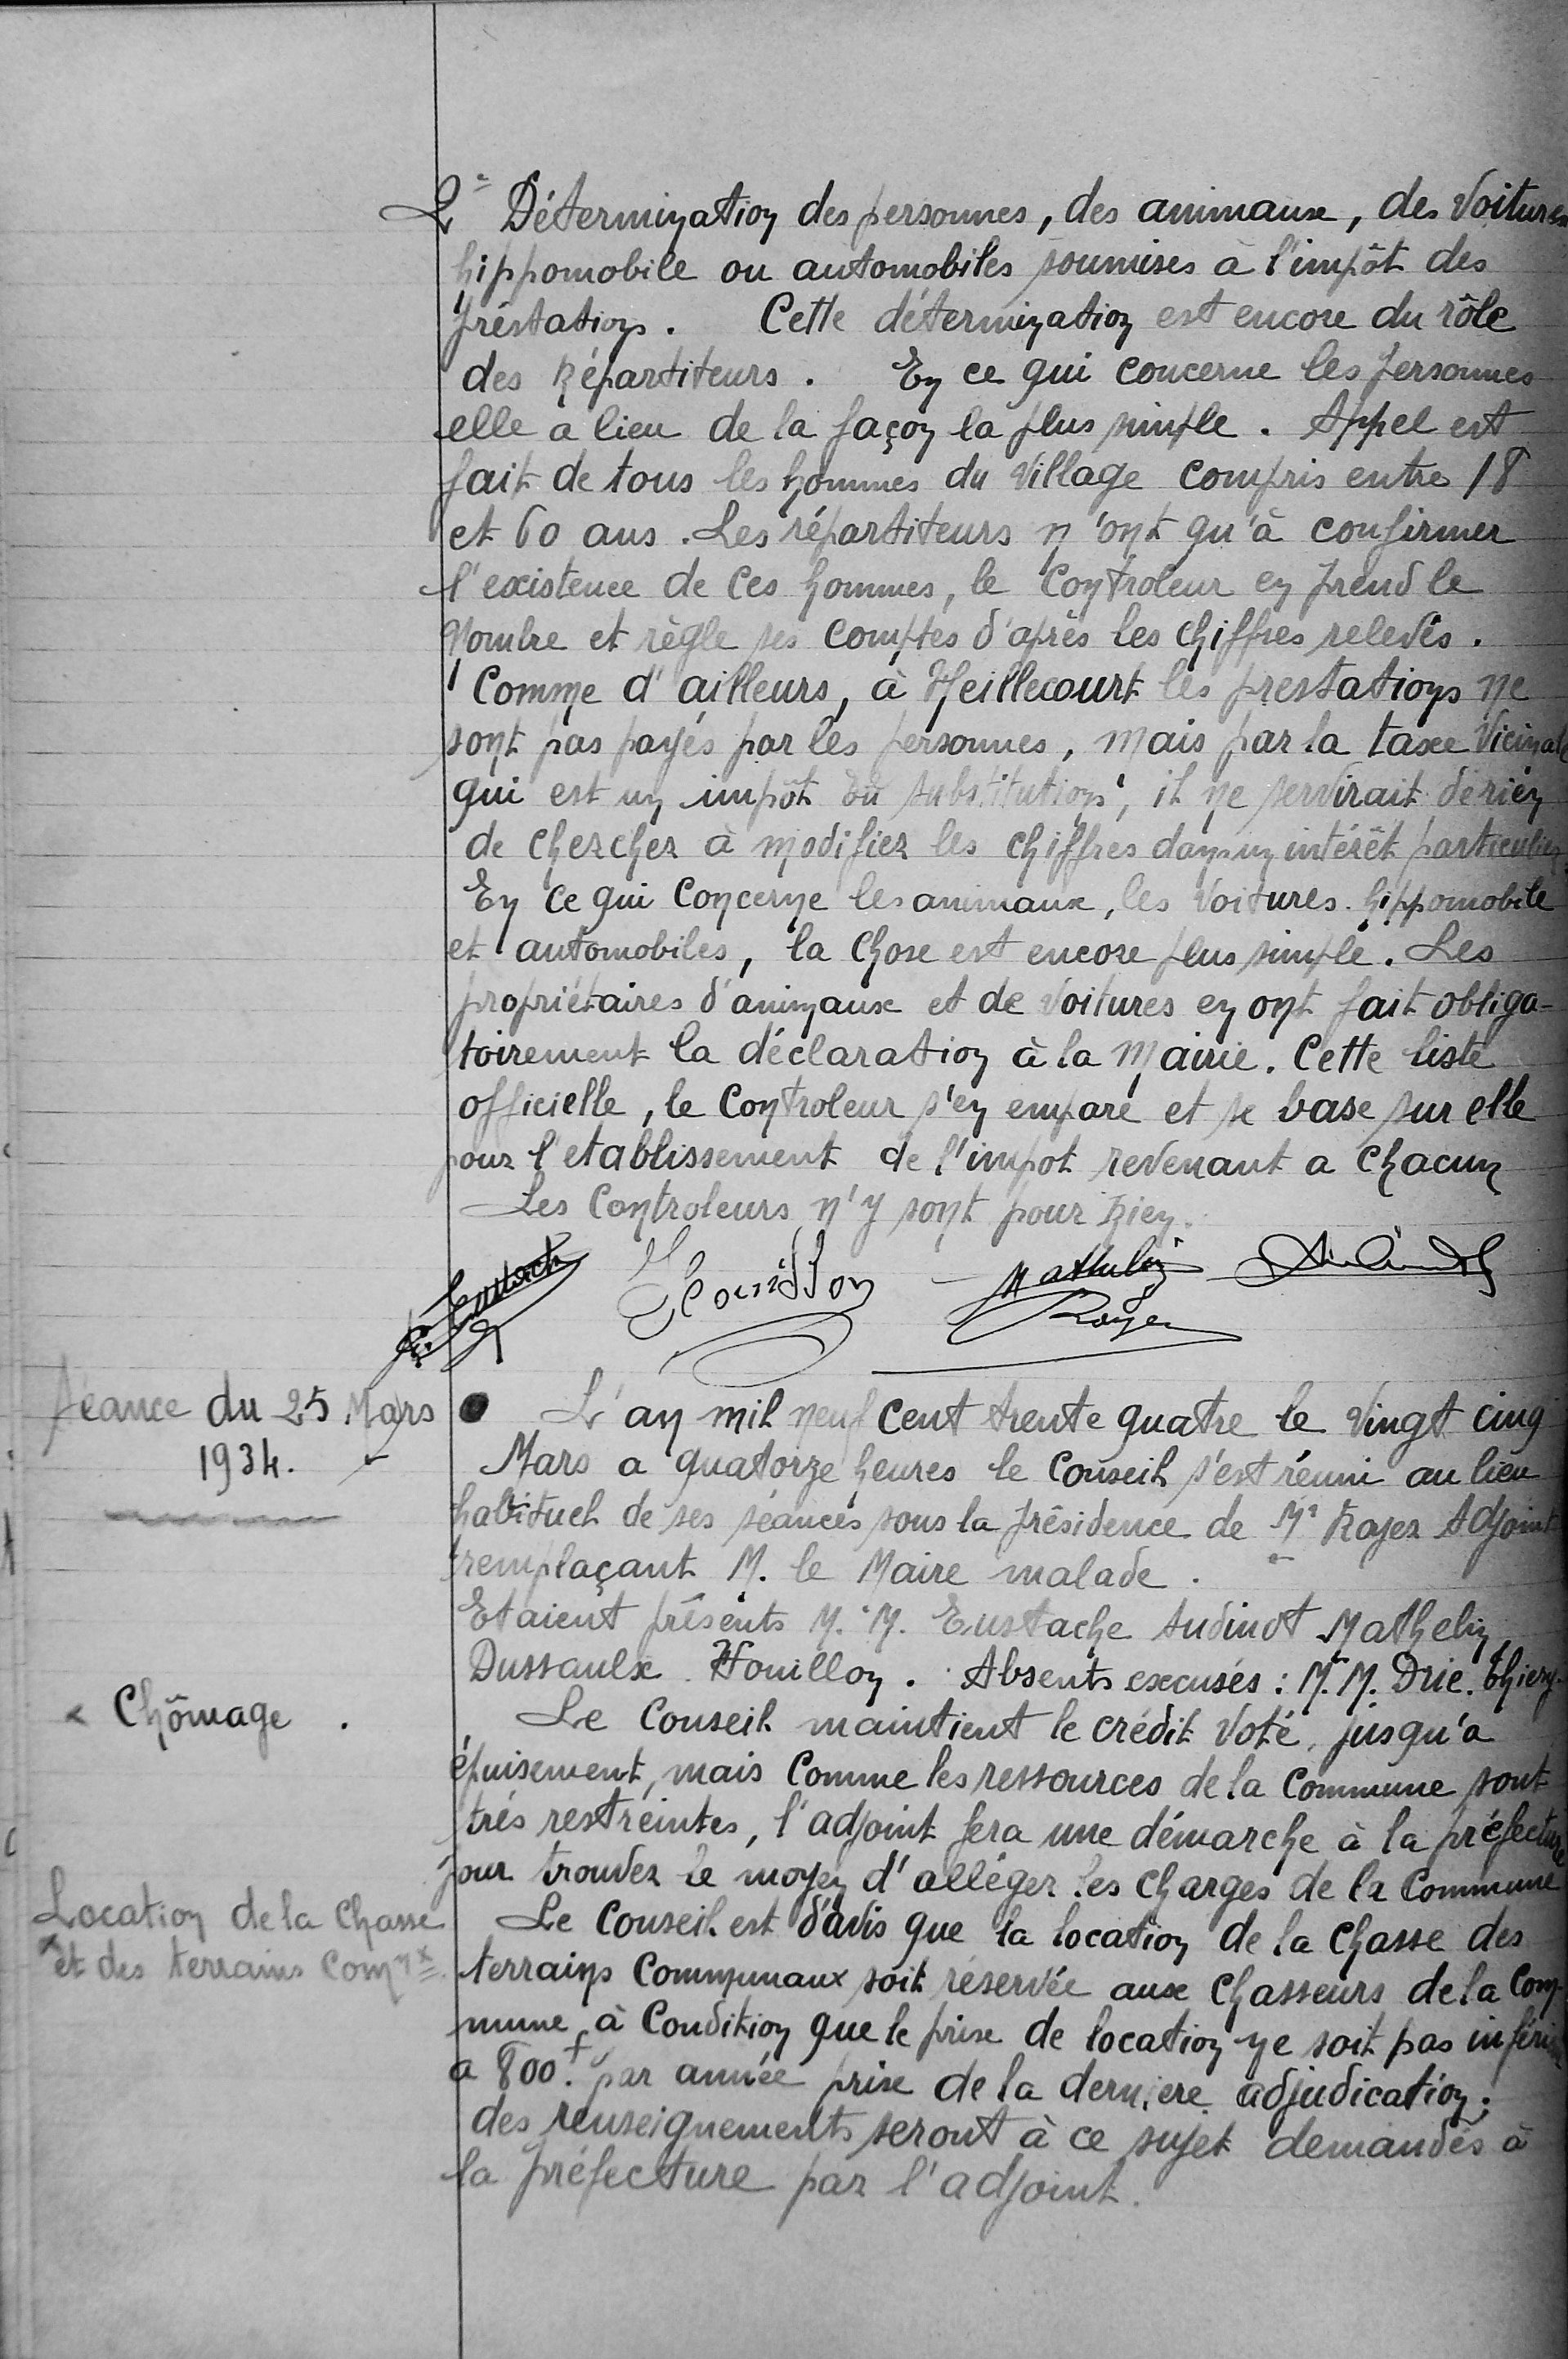 2° Détermination des personnes, des animaux, des voitures
hippomobile ou automobiles soumises à l'impôt des
préstations. Cette détermination est encore du rôle
des répartiteurs. En ce qui concerne les personnes
elle a lieu de la façon la plus simple. Appel est
fait de tous les hommes du village compris entre 18
et 60 ans. Les répartiteurs n'ont qu'à confirmer
l'existence de ces hommes, le controleur en prend le
nombre et règle ses comptes d'après les chiffres relevés.
Comme d'ailleurs, à Heillecourt les prestations ne
sont pas payés par les personnes, mais par la taxe vicinale
qui est un impôt de substitution, il ne servirait de rien
de chercher à modifier les chiffres dans un intérêt particulier
En ce qui concerne les animaux, les voitures hippomobile
et automobiles, la chose est encore plus simple. Les
propriétaires d'animaux et de voitures en ont fait obliga-
toirement la déclaration à la Mairie. Cette liste
officielle, le controleur s'en empare et se base sur elle
pour l'etablissement de l'impot revenant a chacun
Les controleurs n'y sont pour rien.
Eustach Houillon Mathelin
Royer
Séance du 25 Mars
1934.
L'an mil neuf cent trente quatre le vingt cinq
Mars a quatorze heures le Conseil s'est réuni au lieu
habituel de ses séances sous la présidence de Mr Royer Adjoint
remplaçant M. le Maire malade.
Etaient présents M.M. Eustache Audinot Mathelin
Dussaulx Houillon. Absents excusés : M.M. Drie. Thiery.
Chômage.
Le Conseil maintient le crédit voté, jusqu'a
épuisement, mais comme les ressources de la commune sont
trés restreintes, l'adjoint fera une démarche à la préfecture
pour trouver le moyen d'alléger les charges de la Commune
Location de la Chasse
et des terrains Comnx
Le Conseil est d'avis que la location de la chasse des
terrains Communaux soit réservée aux chasseurs de la Com-
mune à condition que le prix de location ne soit pas inférieur
a 800f. par année prix de la derniere adjudication;
des renseignements seront à ce sujet demandés à
la préfecture par l'adjoint.